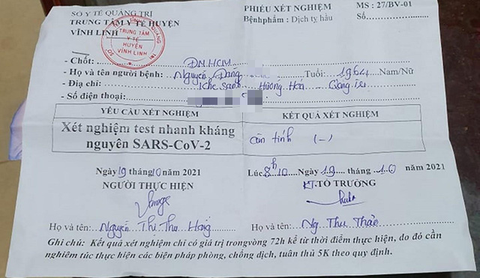 SỞ Y TẾ QUẢNG TRỊ
TRUNG TÂM Y TẾ HUYỆN
VĨNH LINH
PHIẾU XÉT NGHIỆM
Bệnh phẩm : Dịch tỵ hầu
MS : 27/BV-01
Số.
TRUNG TÂM
Y TẾ
HUYỆN
VĨNH LINH
- Chốt: ĐN.HCM
- Họ và tên người bệnh: Nguyễn Đang Tuổi: 1964 Nam/Nữ
- Địa chỉ: Khe Sanh Hướng Hóa Quảng Trị
- Số điện thoại:
YÊU CẦU XÉT NGHIỆM
KẾT QUẢ XÉT NGHIỆM
Xét nghiệm test nhanh kháng
nguyên SARS-CoV-2
âm tính (-)
Ngày 19/10/2021
Lúc 8h10 19 10 2021
NGƯỜI THỰC HIỆN
KT TỔ TRƯỞNG
Họ và tên: Nguyễn Thị Thu Hồng
Họ và tên: Ng. Thu Thảo
Ghi chú: Kết quả xét nghiệm chỉ có giá trị trong vòng 72h kể từ thời điểm thực hiện, do đó cần
nghiêm túc thực hiện các biện pháp phòng, chống dịch, tuân thủ 5K theo quy định.